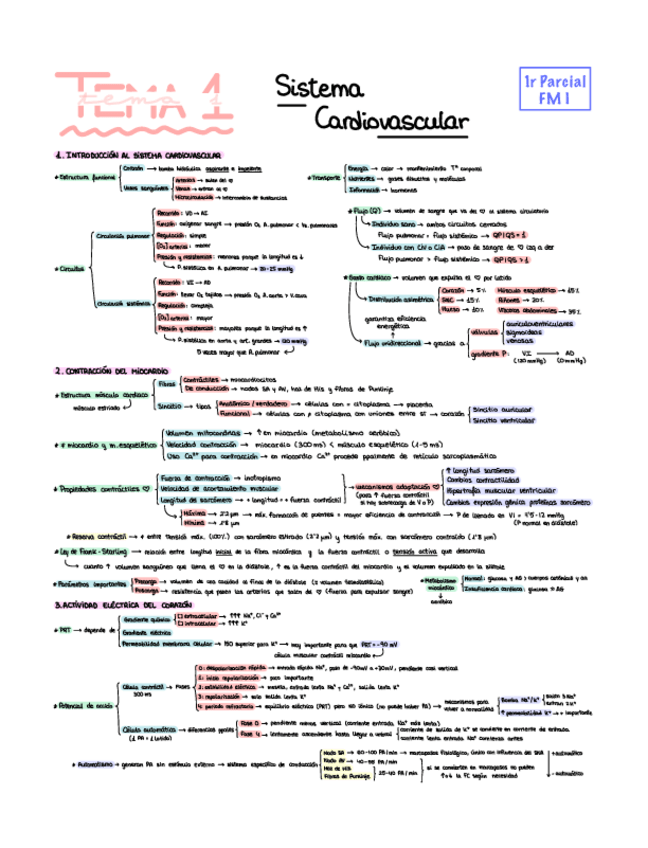 TEMA 1
tema 1
Sistema
Cardiovascular
1r Parcial
FM I
1. INTRODUCCIÓN AL SISTEMA CARDIOVASCULAR
Estructura funcional
Corazón → bomba hidráulica aspirante e impelente
Vasos sanguíneos
Arterias → salen del ♡
Venas → entran al ♡
Microcirculación → intercambio de sustancias
Transporte
Energía → calor → mantenimiento Tª corporal
Nutrientes → gases disueltos y moléculas
Información → hormonas
Circuitos
Circulación pulmonar
Recorrido: VD → AI
Función: oxigenar sangre → presión O₂ A. pulmonar < Vs. pulmonares
Regulación: simple
[O₂] arterias: menor
Presión y resistencias: menores porque la longitud es ↓
P. sistólica en A. pulmonar →
Circulación sistémica
Recorrido: VI → AD
Función: llevar O₂ tejidos → presión O₂ A. aorta > V. cava
Regulación: compleja
[O₂] arterias: mayor
Presión y resistencias: mayores porque la longitud es ↑
P. sistólica en aorta y art. grandes → 120 mmHg
5 veces mayor que A. pulmonar
Flujo (Q) → volumen de sangre que va del ♡ al sistema circulatorio
Individuo sano → ambos circuitos cerrados
Flujo pulmonar = Flujo sistémico → QP/QS = 1
Individuo con CIV o CIA → paso de sangre de ♡ izq a der
Flujo pulmonar > Flujo sistémico → QP/QS > 1
Gasto cardíaco → volumen que expulsa el ♡ por latido
Distribución asimétrica
Corazón → 5%
Músculo esquelético → 15%
SNC → 15%
Riñones → 20%
Vísceras abdominales → 35%
garantiza eficiencia
energética
Flujo unidireccional → gracias a
válvulas
auriculoventriculares
sigmoideas
venosas
gradiente P:
VI → AD
(120 mmHg) (0 mmHg)
2. CONTRACCIÓN DEL MIOCARDIO
Estructura músculo cardíaco
músculo estriado
Fibras
Contráctiles → miocardiocitos
De conducción → nodos SA y AV, haz de His y fibras de Purkinje
Sincitio → tipos
Anatómico / verdadero → células con = citoplasma → placenta
Funcional → células con ≠ citoplasma con uniones entre sí → corazón
Sincitio auricular
Sincitio ventricular
≠ miocardio y m. esquelético
Volumen mitocondrias → ↑ en miocardio (metabolismo aeróbico)
Velocidad contracción → miocardio (300 ms) < músculo esquelético (1-5 ms)
Uso Ca²⁺ para contracción → en miocardio Ca²⁺ procede ppalmente de retículo sarcoplasmático
Propiedades contráctiles ♡
Fuerza de contracción → inotropismo
Velocidades de acortamiento muscular
Longitud del sarcómero → + longitud = + fuerza contráctil
mecanismos adaptación ♡
(para ↑ fuerza contráctil
si hay sobrecarga de V o P)
↑ longitud sarcómero
Cambios contractilidad
Hipertrofia muscular ventricular
Cambios expresión génica proteínas sarcómero
Máxima → 2'2 μm → máx. formación de puentes = mayor eficiencia de contracción → P de llenado en VI = 4'5-12 mmHg
Mínima → 1'8 μm
(P normal en diástole)
Reserva contráctil → ≠ entre tensión máx. (100%) con sarcómero estirado (2'2 μm) y tensión máx. con sarcómero contraído (1'8 μm)
Ley de Frank-Starling → relación entre longitud inicial de la fibra miocárdica y la fuerza contráctil o tensión activa que desarrolla
cuanto ↑ volumen sanguíneo que llena el ♡ en la diástole, ↑ es la fuerza contráctil del miocardio y el volumen expulsado en la sístole
Parámetros importantes
Precarga → volumen de una cavidad al final de la diástole (= volumen telediastólico)
→ resistencia que ponen las arterias que salen de ♡ (fuerza para expulsar sangre)
Metabolismo
miocárdico
Normal:
Insuficiencia cardíaca: glucosa
3. ACTIVIDAD ELÉCTRICA DEL CORAZÓN
PRT → depende de
Gradiente químico
[ ] extracelular → ↑↑↑ Na⁺, Cl⁻ y Ca²⁺
[ ] intracelular → ↑↑↑ K⁺
Gradiente eléctrico
Permeabilidad membrana celular → 150 superior para K⁺ → muy importante para que PRT = -90 mV
célula muscular contráctil miocardio
Potencial de acción
Célula contráctil → fases
300 ms
0: despolarización rápida → entrada rápida Na⁺, pasa de -90mV a +30mV, pendiente casi vertical
1: inicio repolarización → poco importante
2: → meseta, entrada lenta Na⁺ y Ca²⁺, salida lenta K⁺
3: repolarización → solo salida lenta K⁺
4: periodo refractario → equilibrio eléctrico (PRT) pero no iónico (no puede haber PA)
mecanismos para
volver a normalidad
Bomba Na⁺/K⁺
↑ permeabilidad K⁺ → + importante
Célula automática → diferencias
(1 PA = 1 latido)
Fase 0 → pendiente menos vertical (corriente entrada Na⁺ más lenta)
Fase 4 → lentamente ascendente hasta llegar a umbral
corriente de salida de K⁺ se convierte en corriente de entrada
corriente lenta entrada Na⁺ comienza antes
Automatismo → generan PA sin estímulo externo → sistema específico de conducción
Nodo SA → 60-100 PA/min → marcapasos fisiológico, único con influencia del SNA
Nodo AV → 40-55 PA/min
Haz de His
Fibras de Purkinje
25-40 PA/min
si se convierten en marcapasos no pueden
↑ o ↓ la FC según necesidad
+ automático
- automático